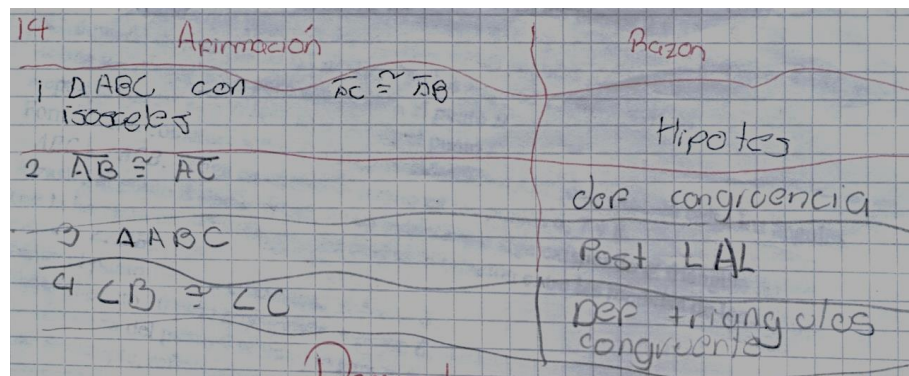 14 Afirmación Razon
1 △ABC con AC ≅ AB
isosceles
Hipotes
2 AB ≅ AC
def congruencia
3 AABC
Post LAL
4 ∠B ≅ ∠C
Def triangulos
congruente